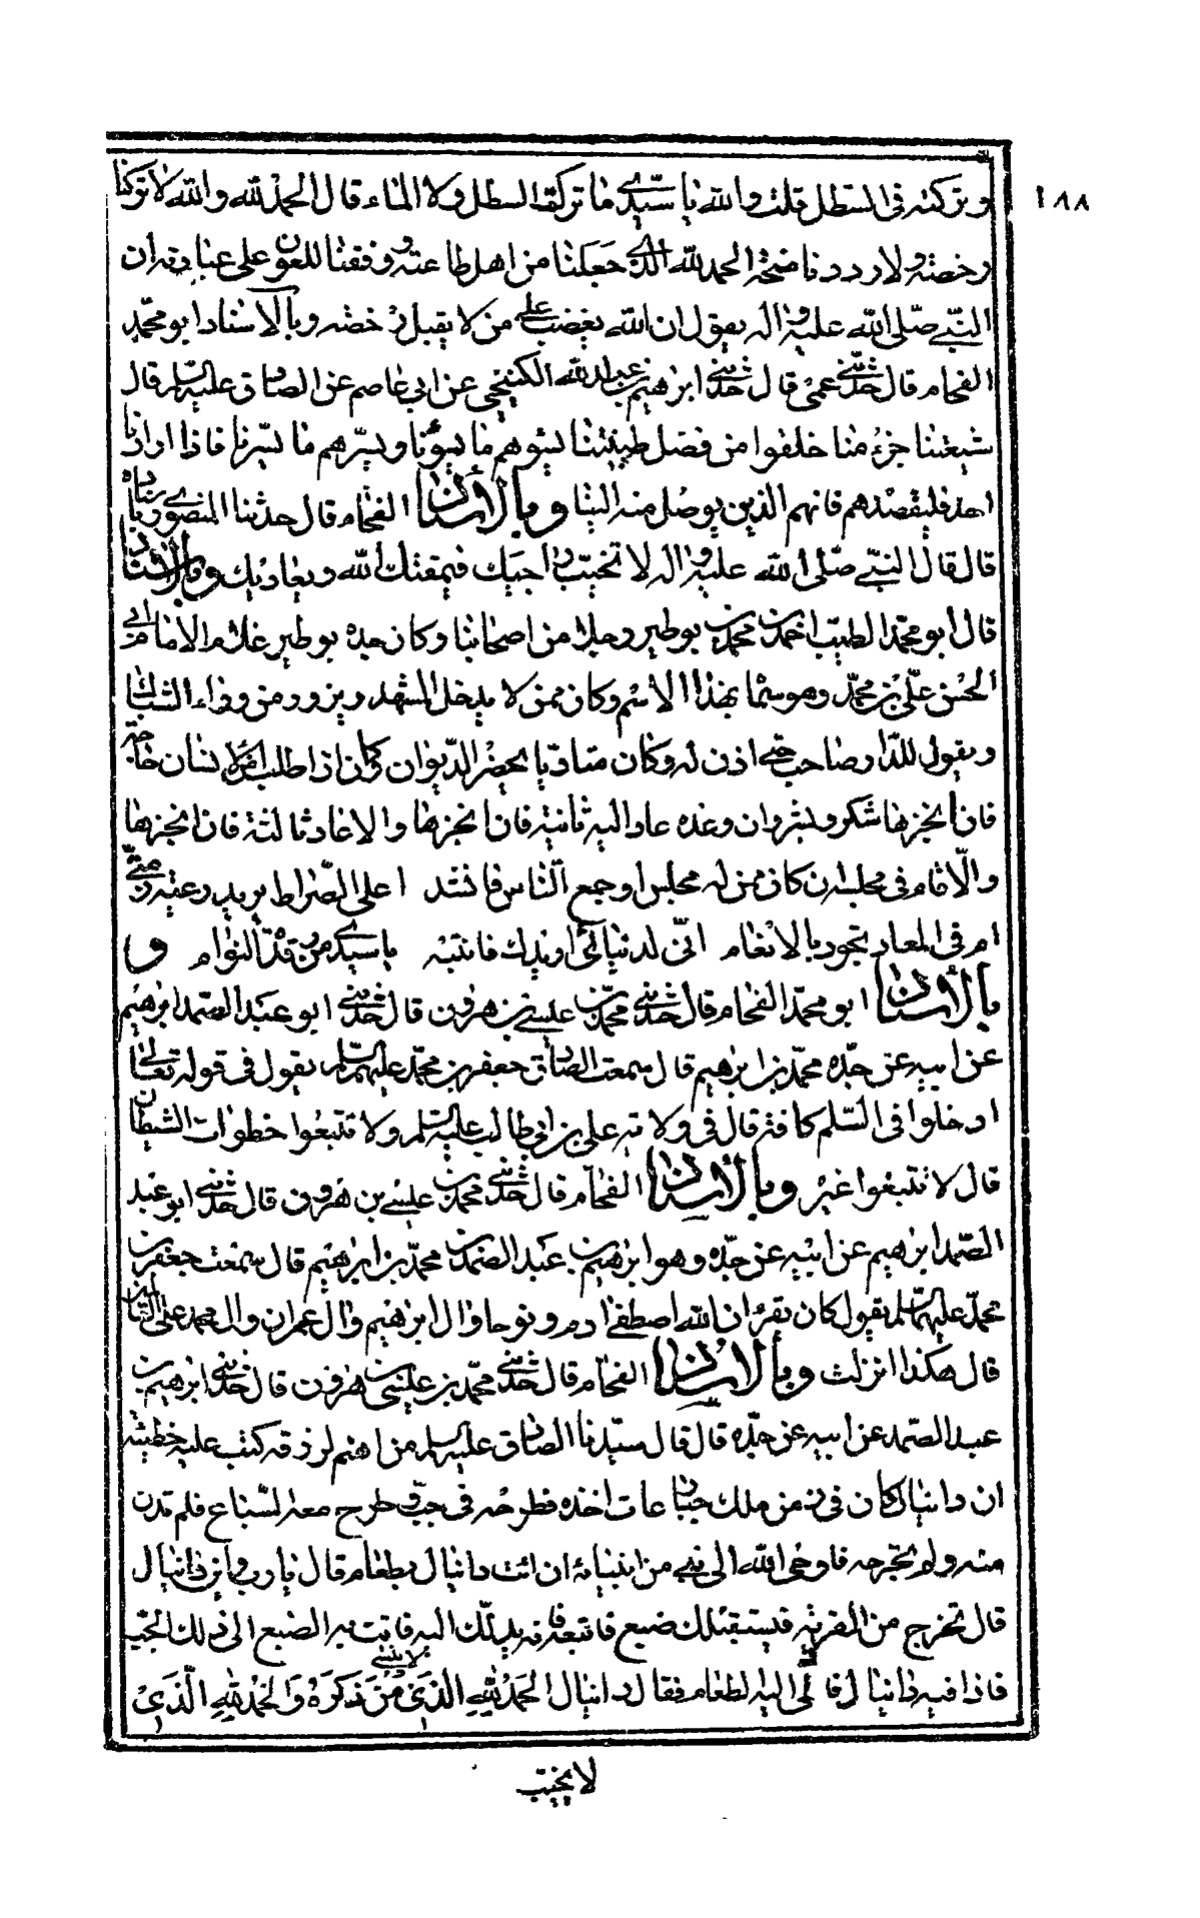 ١٨٨
وتركته في السطل قلت والله يا سيدي ما تركت السطل ولا الماء قال الحمد لله والله لا تركنا
رخصة ولا رددنا منحة الحمد لله الذي جعلنا من اهل طاعته ووفقنا للعون على عبادته ان
النبي صلى الله عليه واله يقول ان الله يغضب على من لا يقبل رخصه وبالاسناد ابو محمد
الفحام قال حدثني عمي قال حدثني ابرهيم بن عبد الله الكنيخي عن ابي عاصم عن الصادق عليه السلم قال
شيعتنا جزء منا خلقوا من فضل طينتنا يسوهم ما يسؤنا ويسرهم ما يسرنا فاذا ارادنا
احد فليقصدهم فانهم الذين يوصل منه الينا وبالاسناد الفحام قال حدثنا المنصوري باسناده
قال قال النبي صلى الله عليه واله لا تخيب راجيك فيمقتك الله ويعاديك وبالاسناد
قال ابو محمد الطيب احمد بن محمد بن بوطير رجلا من اصحابنا وكان جده بوطير غلام الامام ابي
الحسن علي بن محمد وهو سماه بهذا الاسم وكان ممن لا يدخل المشهد ويزور من وراء الشباك
ويقول للدار صاحب حتى اذن له وكان متادبا يحضر الديوان وكان اذا طلب من الانسان حاجة
فان انجزها شكر وبشر وان وعده عاد اليه ثانية فان انجزها والا عاد ثالثة فان انجزها
والا قام في مجلسه ان كان ممن له مجلس او جمع الناس فانشد اعلى الصراط يريد رعية ذمتي
ام في المعاد تجود بالانعام اني لدنيائي اريدك فانتبه يا سيدي من رقدة النوام و
بالاسناد ابو محمد الفحام قال حدثني محمد بن عيسى بن هرون قال حدثني ابو عبد الصمد ابرهيم
عن ابيه عن جده محمد بن ابرهيم قال سمعت الصادق جعفر بن محمد عليهم السلم يقول في قوله تعالى
ادخلوا في السلم كافة قال في ولاية علي بن ابي طالب عليه السلم ولا تتبعوا خطوات الشيطان
قال لا تتبعوا غيره وبالاسناد الفحام قال حدثني محمد بن عيسى بن هرون قال حدثني ابو عبد
الصمد ابرهيم عن ابيه عن جده وهو ابرهيم بن عبد الصمد بن محمد بن ابرهيم قال سمعت جعفر بن
محمد عليهما السلم يقول كان يقرء ان الله اصطفى ادم ونوحا وال ابرهيم وال عمران وال محمد على العالمين
قال هكذا انزلت وبالاسناد الفحام قال حدثني محمد بن عيسى بن هرون قال حدثني ابرهيم بن
عبد الصمد عن ابيه عن جده قال قال سيدنا الصادق عليه السلم من اهتم لرزقه كتب عليه خطيئة
ان دانيال كان في زمن ملك جبار عات اخذه فطرحه في جب وطرح معه السباع فلم تدن
منه ولم تجرحه فاوحى الله الى نبي من انبيائه ان ائت دانيال بطعام قال يا رب واين دانيال
قال تخرج من القرية فيستقبلك ضبع فاتبعه فانه يدلك اليه فاتت به الضبع الى ذلك الجب
فاذا فيه دانيال فالقى اليه الطعام فقال دانيال الحمد لله الذي لا ينسى من ذكره والحمد لله الذي
لا يخيب